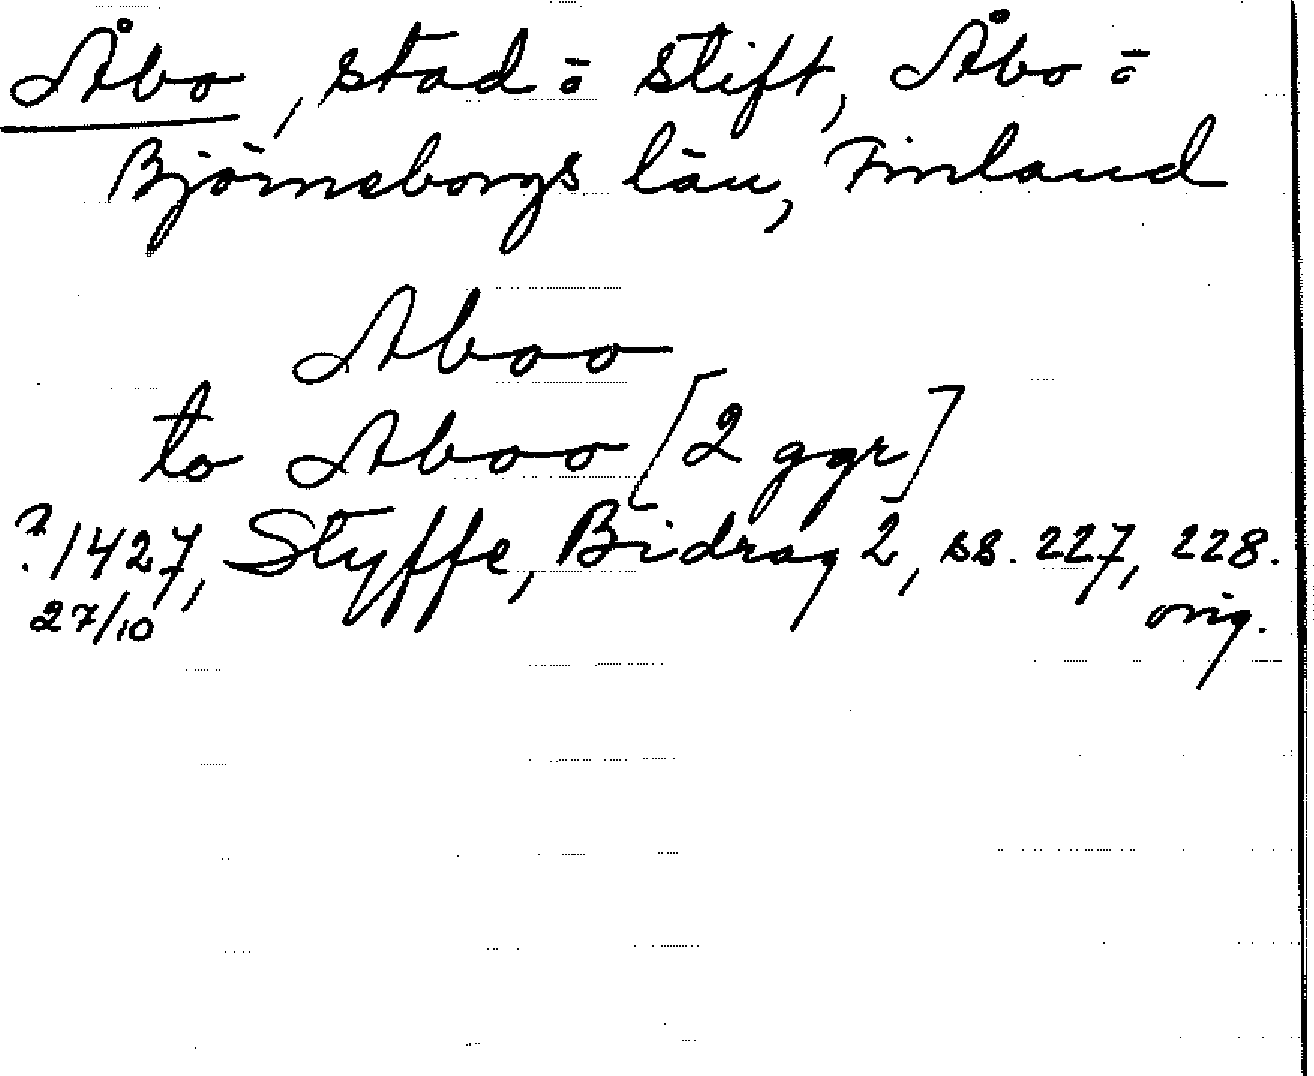 Åbo, stad o stift, Åbo o
Björneborgs län, Finland
Aboo
to Aboo [2 ggr]
?1427, Styffe, Bidrag 2, ss. 227, 228.
27/10 orig.